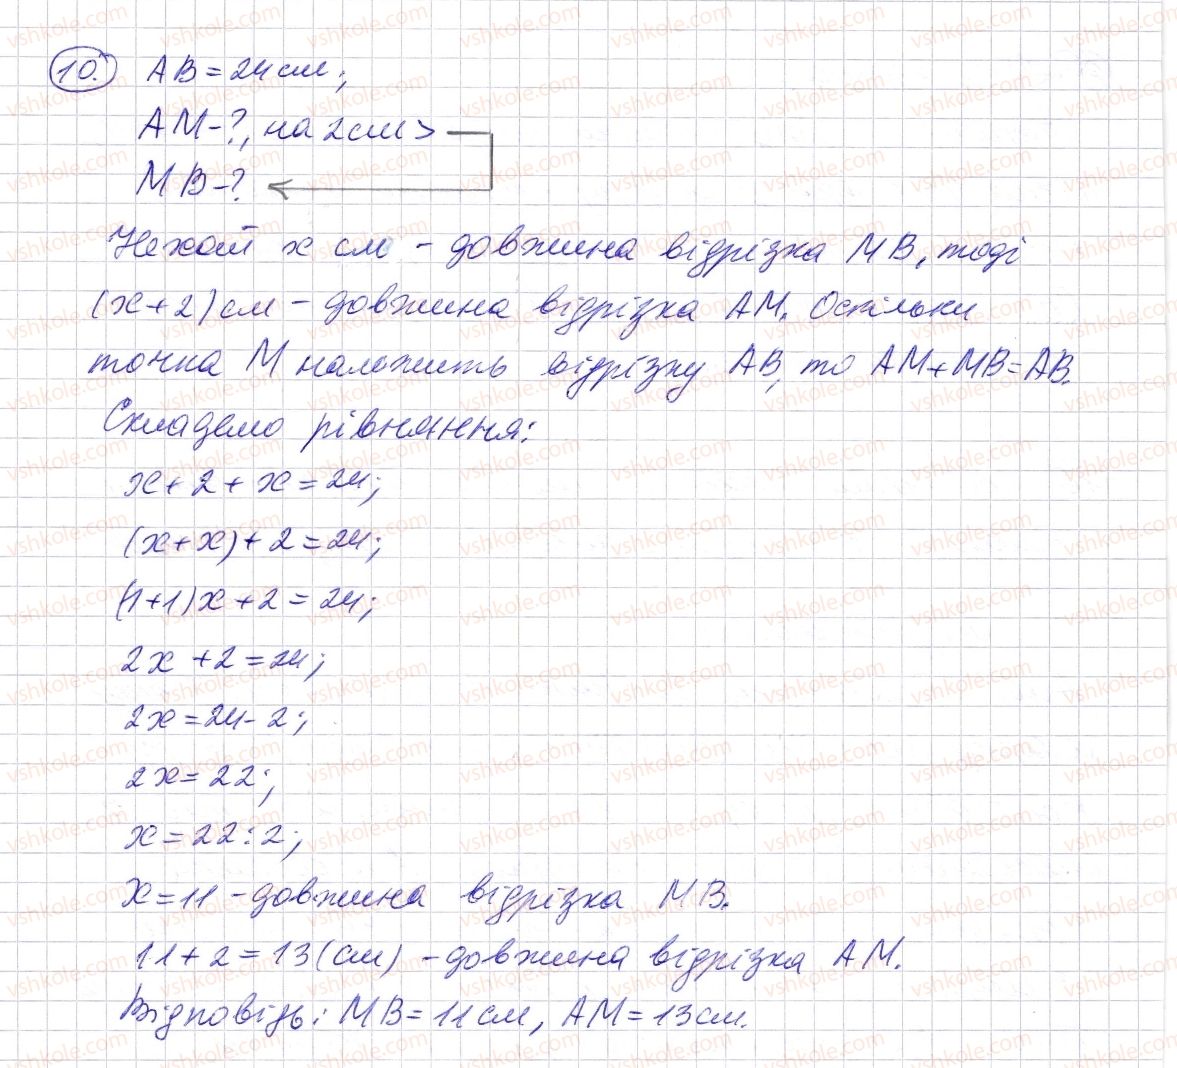 10. AB = 24 см;
AM - ?, на 2 см >
MB - ?
Нехай x см - довжина відрізка MB, тоді
(x + 2) см - довжина відрізка AM. Оскільки
точка M належить відрізку AB, то AM + MB = AB.
Складемо рівняння:
x + 2 + x = 24;
(x + x) + 2 = 24;
(1 + 1)x + 2 = 24;
2x + 2 = 24;
2x = 24 - 2;
2x = 22;
x = 22 : 2;
x = 11 - довжина відрізка MB.
11 + 2 = 13 (см) - довжина відрізка AM.
Відповідь: MB = 11 см, AM = 13 см.